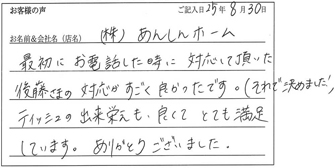 お客様の声
ご記入日25年8月30日
お名前&会社名(店名) (株)あんしんホーム
最初にお電話した時に対応して頂いた
後藤さまの対応がすごく良かったです。(それで決めました)
ティッシュの出来栄えも良くてとても満足
しています。ありがとうございました。